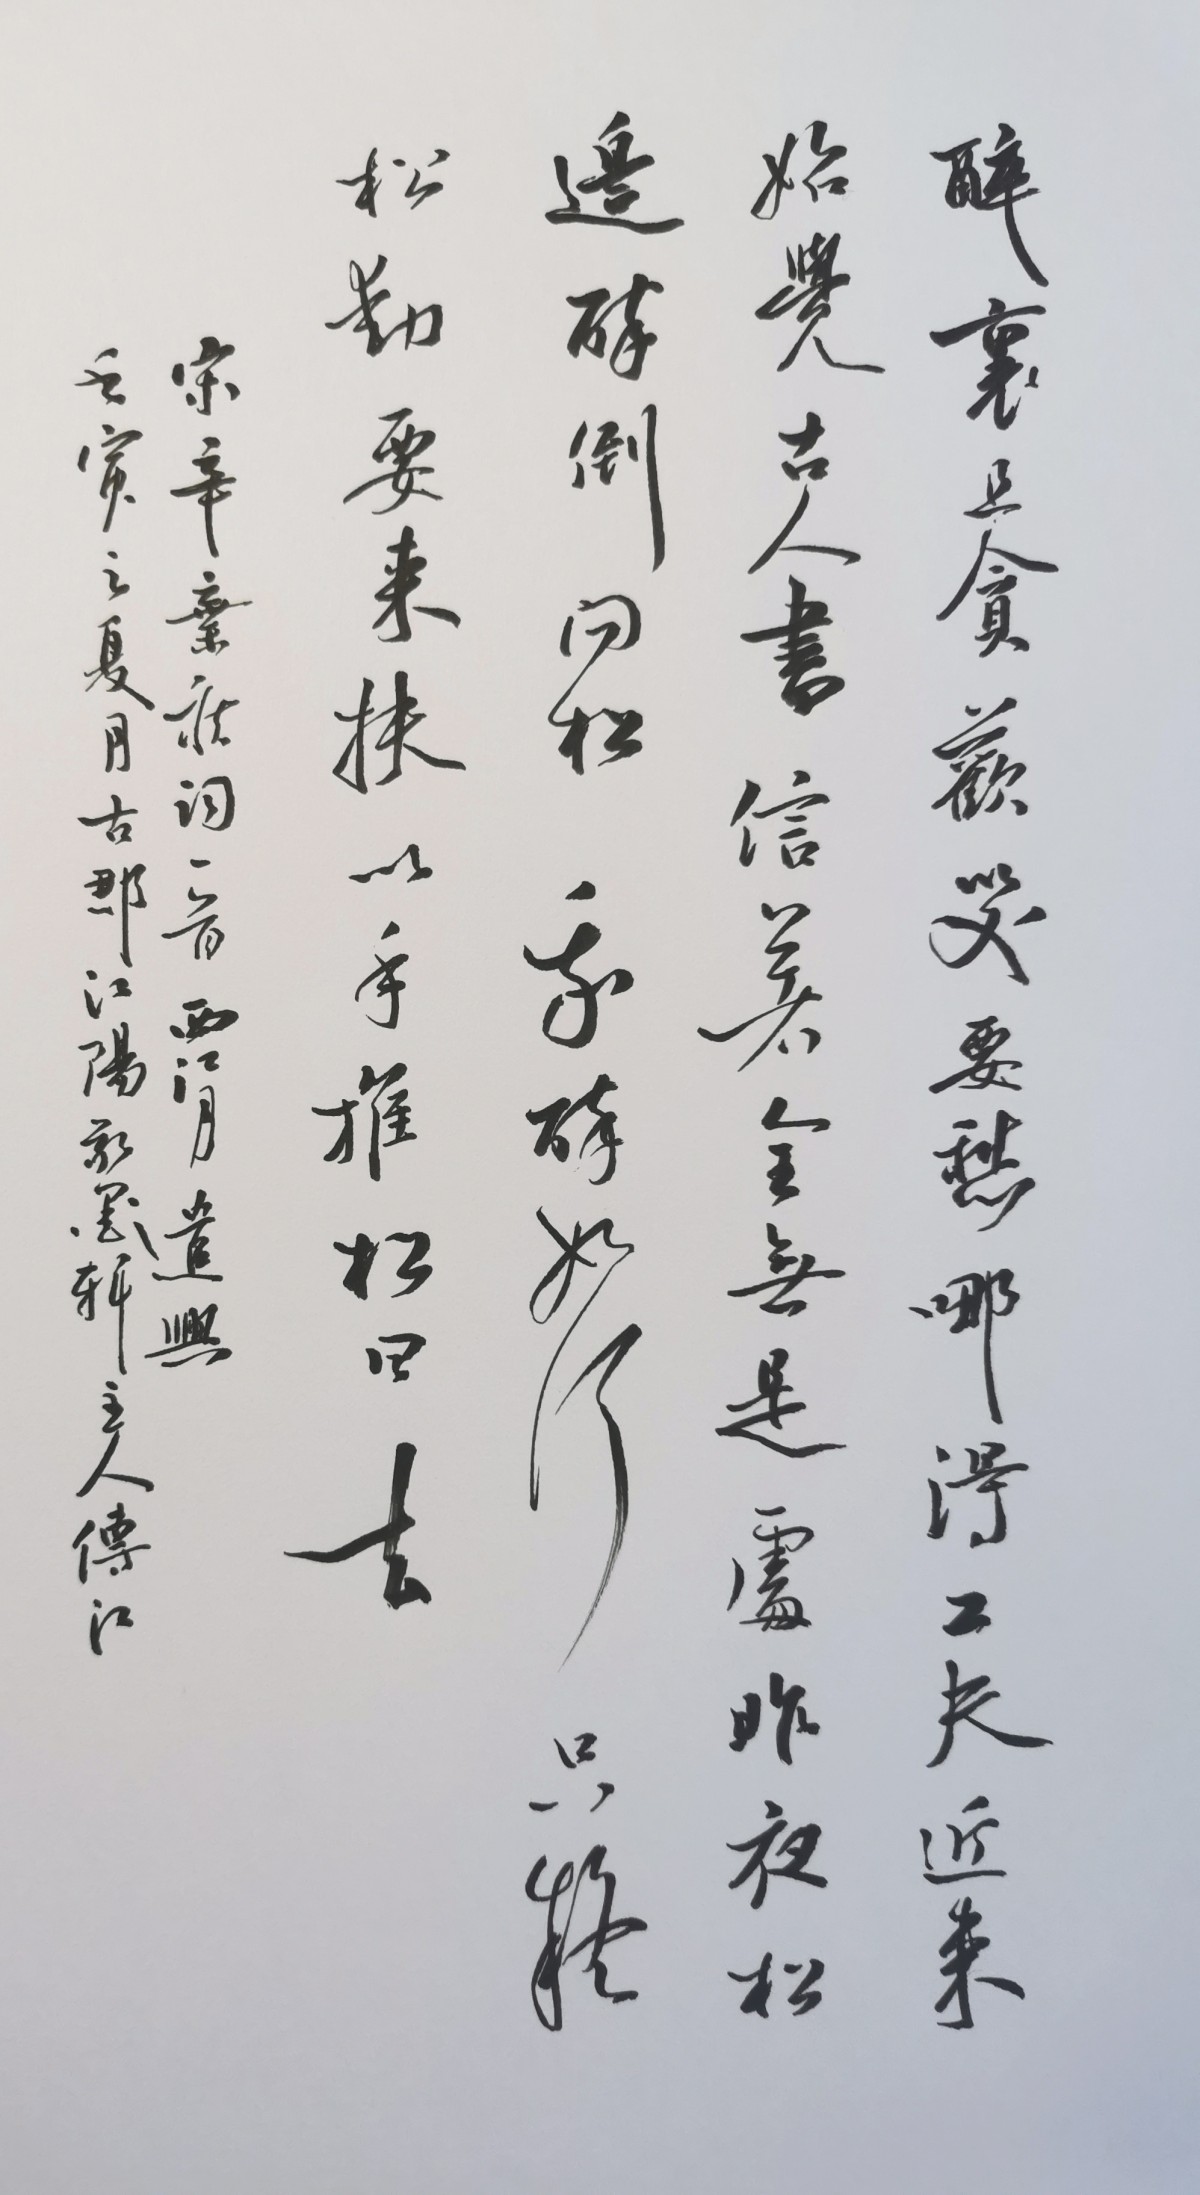 醉裏且貪歡笑要愁哪得工夫近来
始覺古人書信著全無是處昨夜松
邊醉倒问松我醉如何只疑
松動要来扶以手推松曰去
宋辛棄疾词一首西江月遣興
壬寅之夏月古郡江陽主人傅江